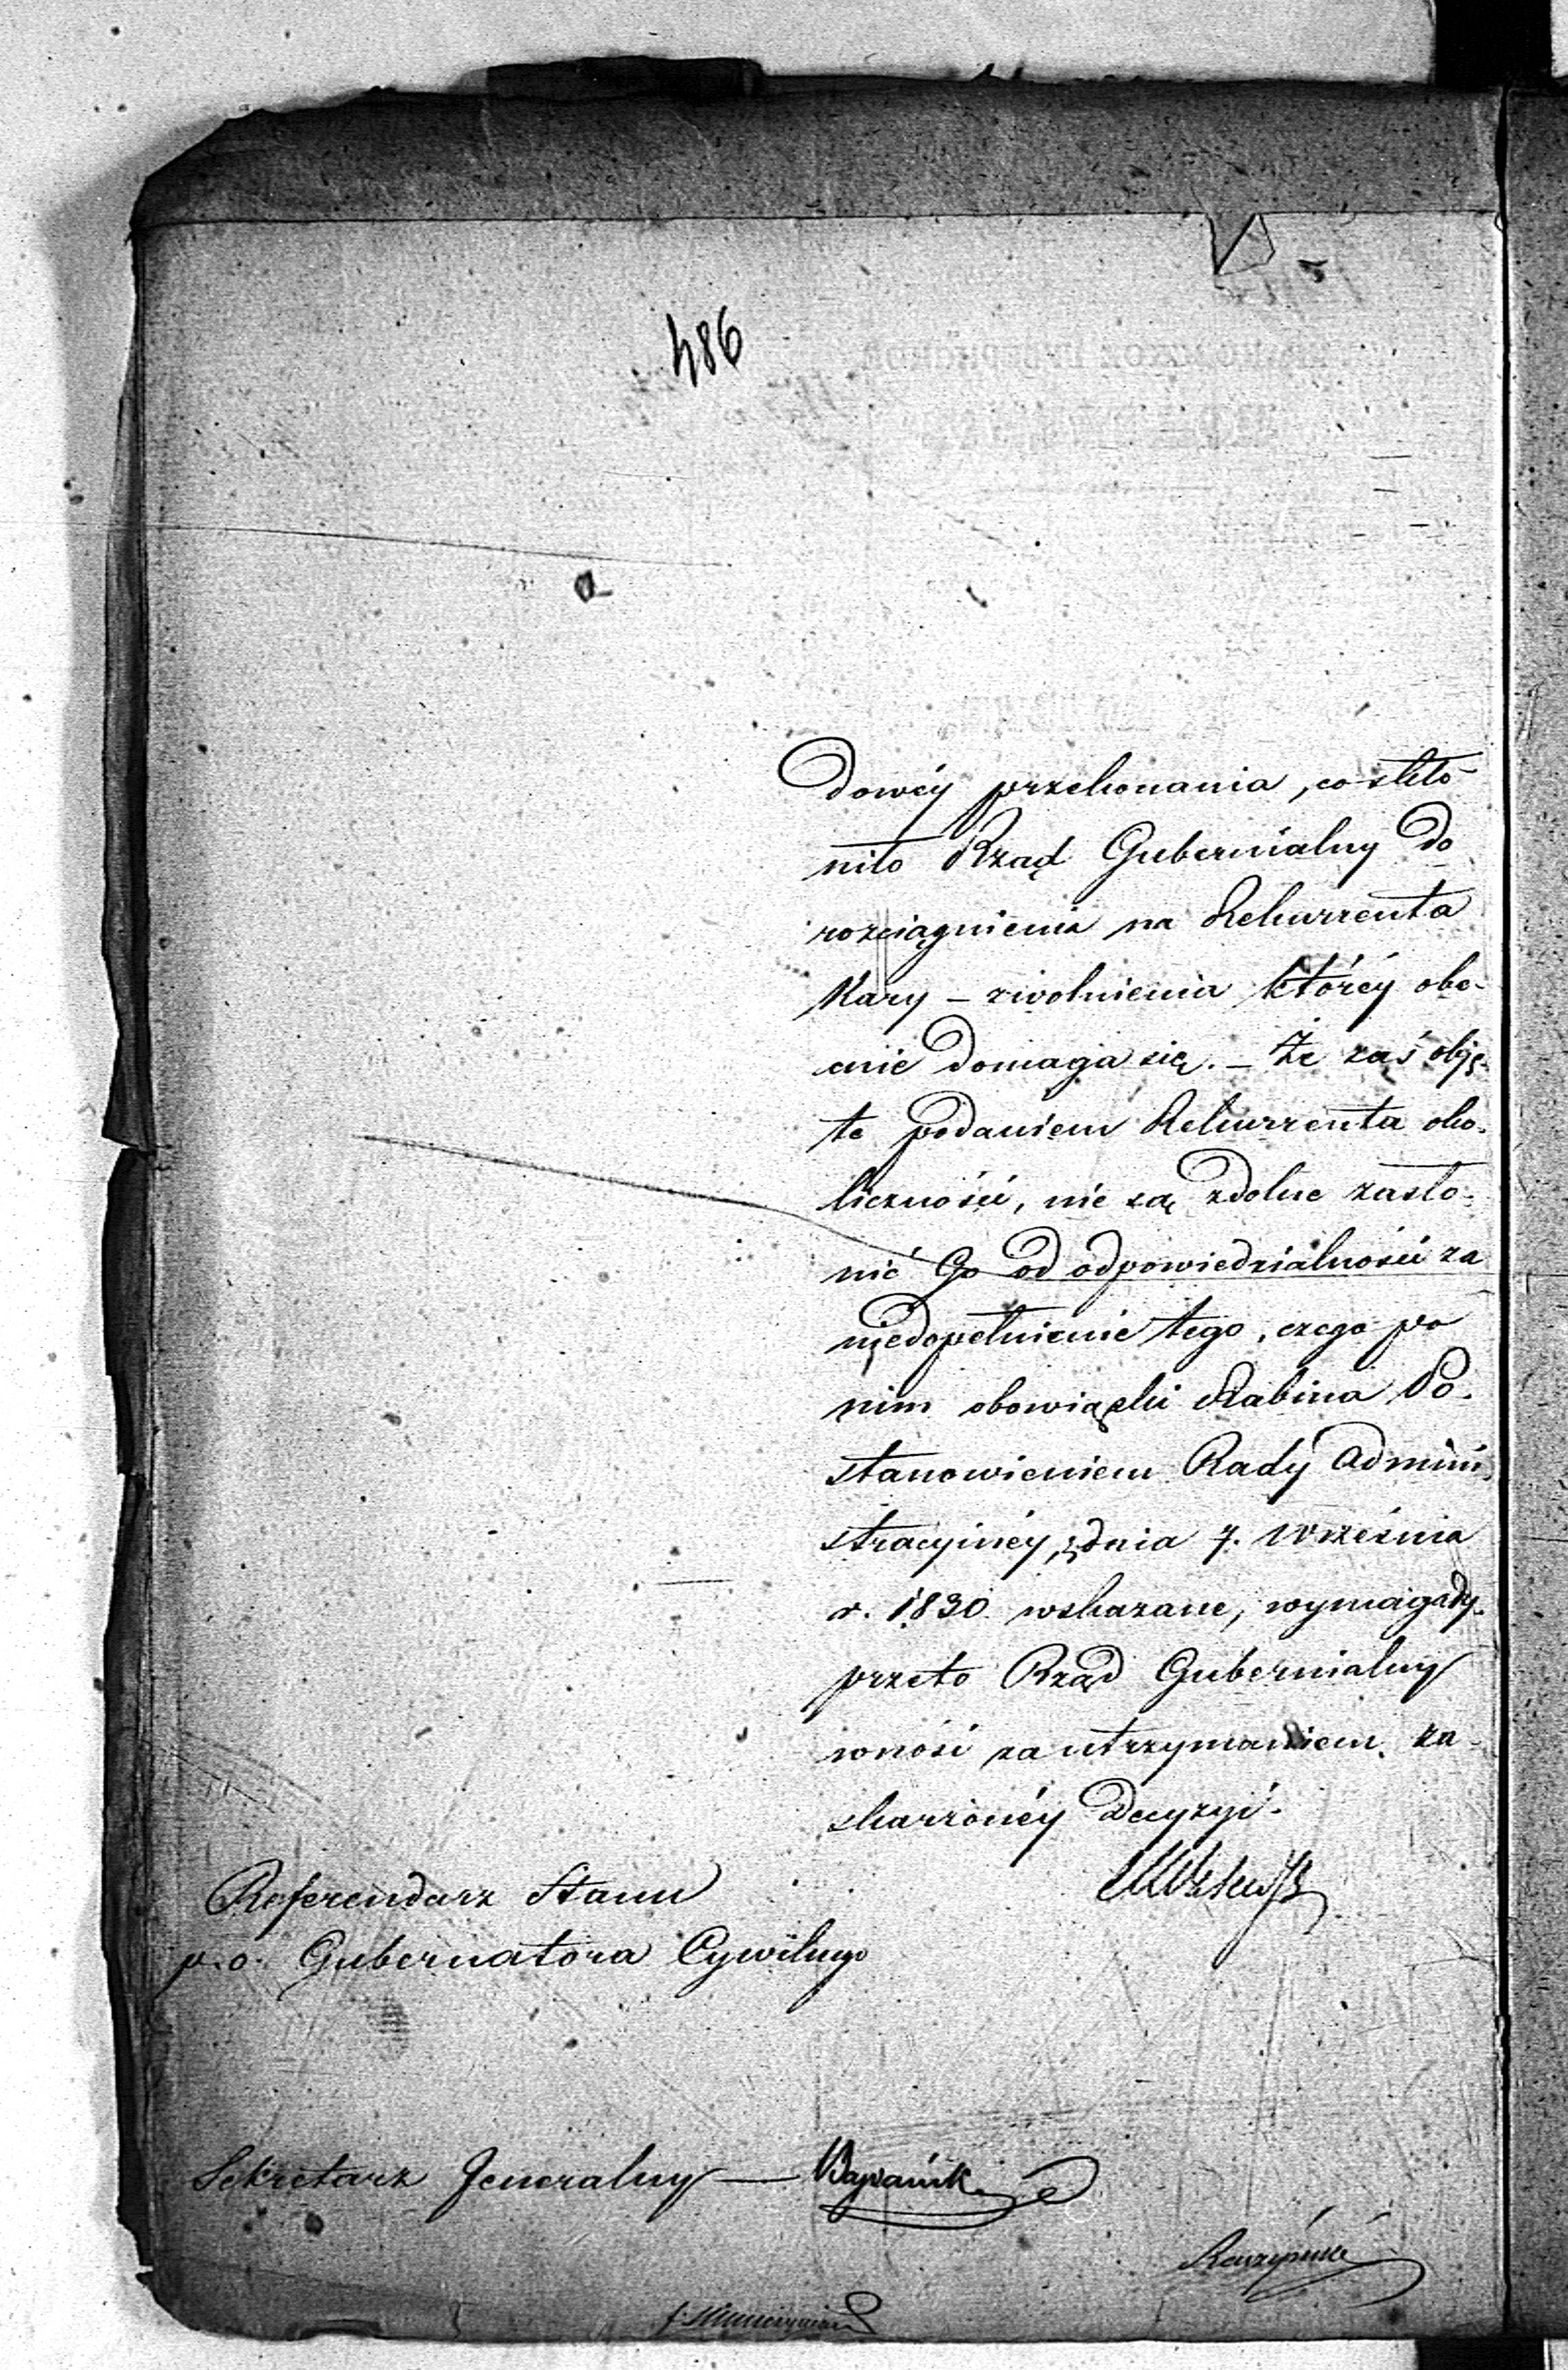 486
dowéy przekonania, co skło-
niło Rząd Gubernialny do
rozciągnienia na Rekurrenta
Kary – zwolnienia któréy obe-
cnie domaga się. – Że zaś obję-
te podaniem Rekurrenta oko-
liczności, nie są zdolne zasło-
nić Go od odpowiedzialności za
niedopełnienie tego, czego po
nim obowiązki Rabina Po-
stanowieniem Rady Admini-
stracyinéy, z dnia 7. Września
r. 1830 wskazane, wymagały.
przeto Rząd Gubernialny
wnosi za utrzymaniem za-
skarżonéy Decyzyi.
Referendarz Stanu
p.o. Gubernatora Cywilnego
Sekretarz Jeneralny —